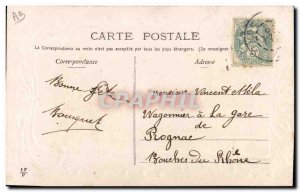 AB
CARTE POSTALE
La Correspondance au recto n'est pas acceptée par tous les pays étrangers. (Se renseigner
Correspondance
Adresse
Bonne fête
Bouquet
Monsieur Vincent Mela
Wagonnier à La gare
de
Rognac
Bouches du Rhône
CPAPHIL